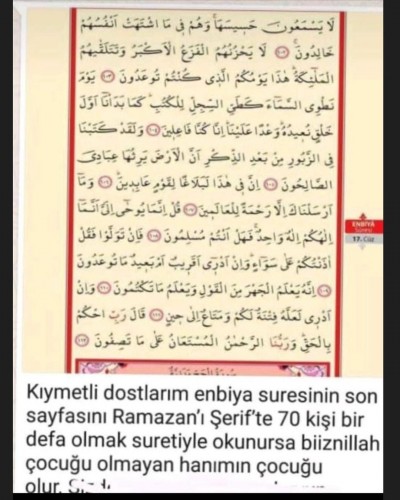 لَا يَسْمَعُونَ حَسِيسَهَا وَهُمْ فِي مَا اشْتَهَتْ اَنْفُسُهُمْ
خَالِدُونَ ﴿١٠٢﴾ لَا يَحْزُنُهُمُ الْفَزَعُ الْاَكْبَرُ وَتَتَلَقّٰيهُمُ
الْمَلٰٓئِكَةُ هٰذَا يَوْمُكُمُ الَّذِي كُنْتُمْ تُوعَدُونَ ﴿١٠٣﴾ يَوْمَ
نَطْوِي السَّمَٓاءَ كَطَيِّ السِّجِلِّ لِلْكُتُبِ كَمَا بَدَأْنَٓا اَوَّلَ
خَلْقٍ نُعِيدُهُ وَعْدًا عَلَيْنَا اِنَّا كُنَّا فَاعِلِينَ ﴿١٠٤﴾ وَلَقَدْ كَتَبْنَا
فِي الزَّبُورِ مِنْ بَعْدِ الذِّكْرِ اَنَّ الْاَرْضَ يَرِثُهَا عِبَادِيَ
الصَّالِحُونَ ﴿١٠٥﴾ اِنَّ فِي هٰذَا لَبَلَاغًا لِقَوْمٍ عَابِدِينَ ﴿١٠٦﴾ وَمَٓا
اَرْسَلْنَاكَ اِلَّا رَحْمَةً لِلْعَالَمِينَ ﴿١٠٧﴾ قُلْ اِنَّمَا يُوحٰٓى اِلَيَّ اَنَّمَٓا
اِلٰهُكُمْ اِلٰهٌ وَاحِدٌ فَهَلْ اَنْتُمْ مُسْلِمُونَ ﴿١٠٨﴾ فَاِنْ تَوَلَّوْا فَقُلْ
اٰذَنْتُكُمْ عَلٰى سَوَٓاءٍ وَاِنْ اَدْرِٓي اَقَرِيبٌ اَمْ بَعِيدٌ مَا تُوعَدُونَ
﴿١٠٩﴾ اِنَّهُ يَعْلَمُ الْجَهْرَ مِنَ الْقَوْلِ وَيَعْلَمُ مَا تَكْتُمُونَ ﴿١١٠﴾ وَاِنْ
اَدْرِي لَعَلَّهُ فِتْنَةٌ لَكُمْ وَمَتَاعٌ اِلٰى حِينٍ ﴿١١١﴾ قَالَ رَبِّ احْكُمْ
بِالْحَقِّ وَرَبُّنَا الرَّحْمٰنُ الْمُسْتَعَانُ عَلٰى مَا تَصِفُونَ ﴿١١٢﴾
ENBİYA
Sûresi
17. Cüz
Kıymetli dostlarım enbiya suresinin son
sayfasını Ramazan’ı Şerif’te 70 kişi bir
defa olmak suretiyle okunursa biiznillah
çocuğu olmayan hanımın çocuğu
olur.